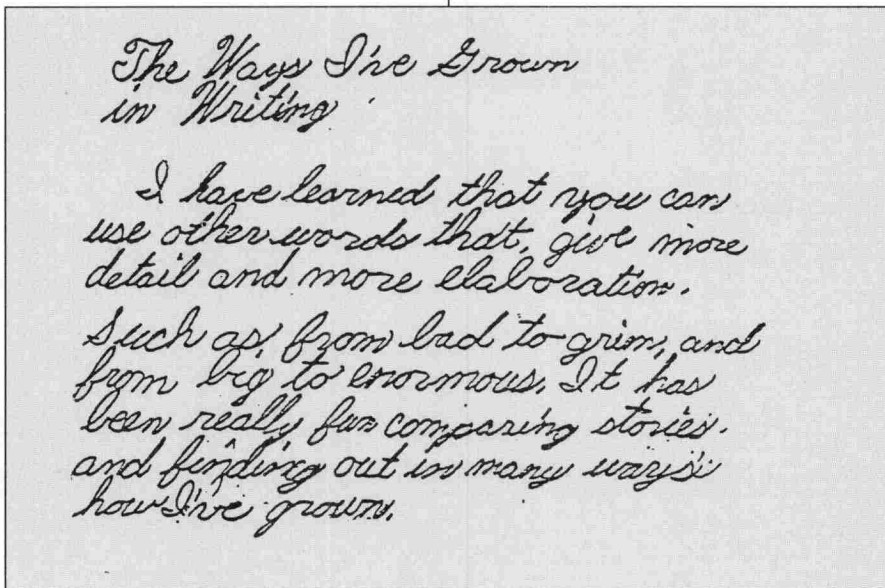 The Ways I've Grown
in Writing
I have learned that you can
use other words that, give more
detail and more elaboration.
Such as, from bad to grim, and
from big to enormous. It has
been really fun comparing stories.
and finding out in many ways
how I've grown.